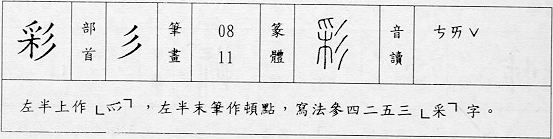 彩 部首 彡 筆畫 08 11 篆體 彩 音讀 ㄘㄞˇ
左半上作﹂爫﹁，左半末筆作頓點，寫法參四二五三﹂采﹁字。